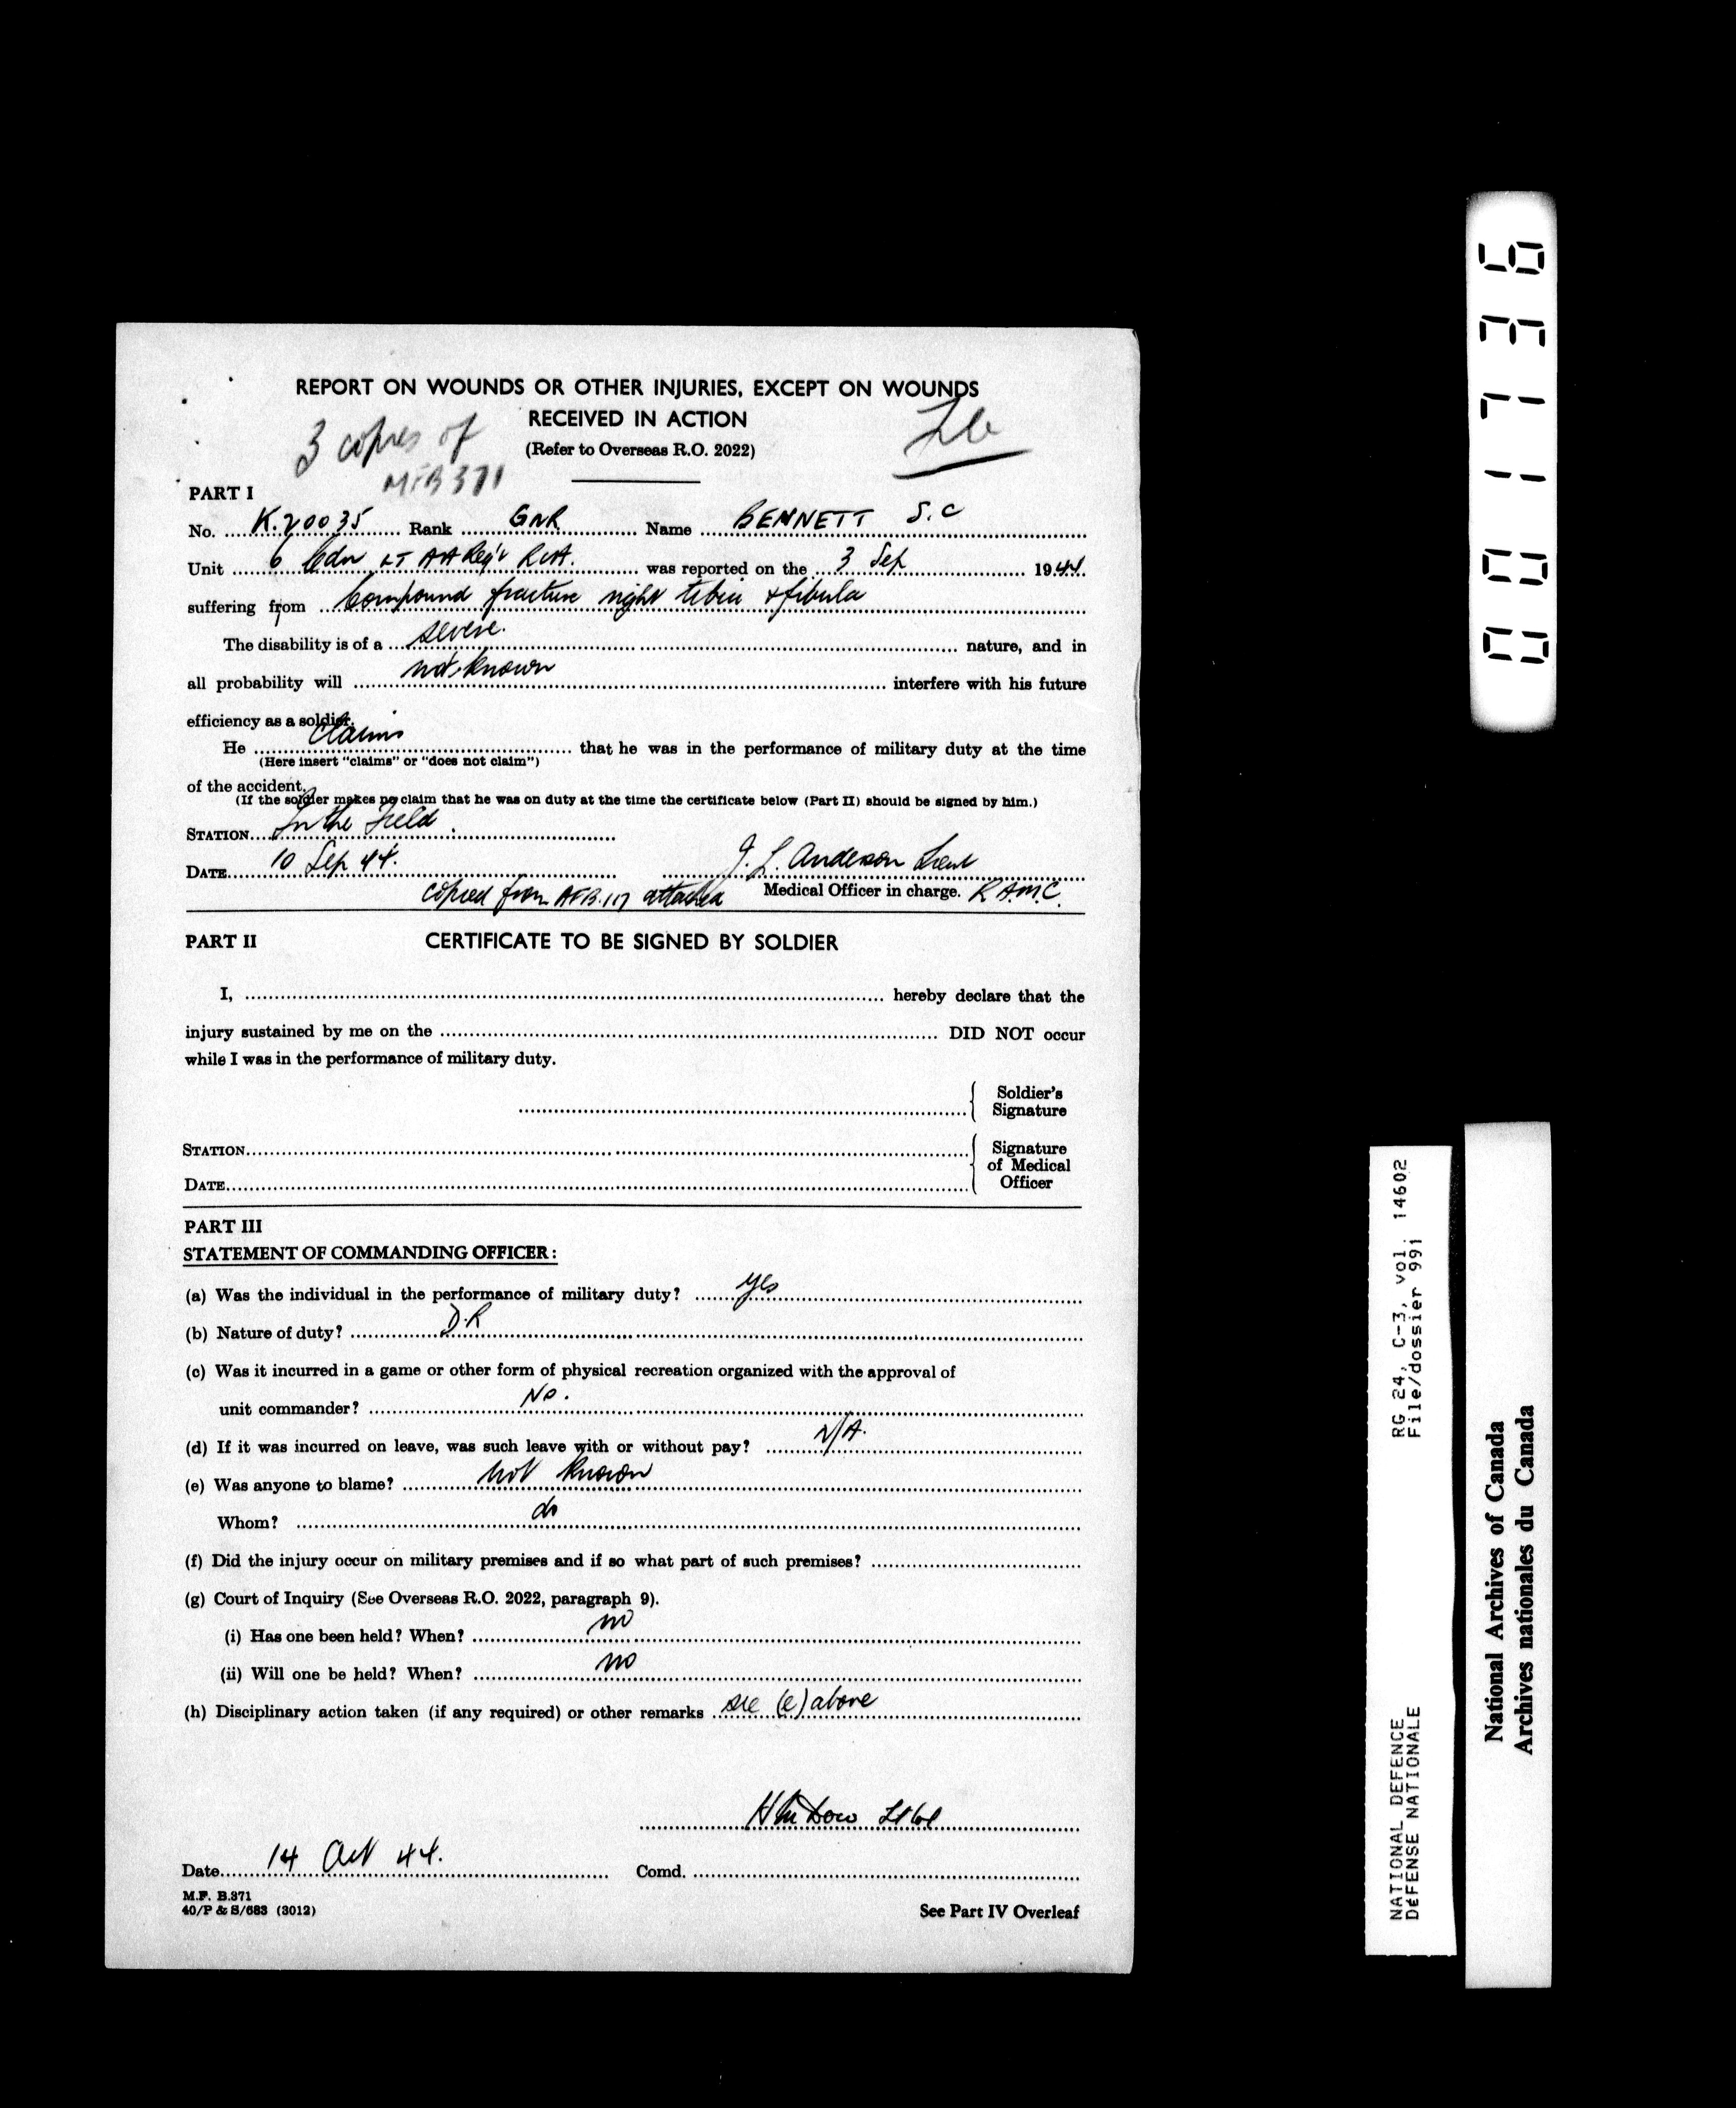 REPORT ON WOUNDS OR OTHER INJURIES, EXCEPT ON WOUNDS
RECEIVED IN ACTION
3 copies of
MFB 371
(Refer to Overseas R.O. 2022)
PART I
No. K.20035 Rank GNR Name BENNETT S.C
Unit 6 Cdn LT AA Reg't RCA. was reported on the 3 Sep 1944.
suffering from Compound fracture right tibia & fibula
The disability is of a severe. nature, and in
all probability will not known interfere with his future
efficiency as a soldier.
He claims that he was in the performance of military duty at the time
(Here insert "claims" or "does not claim")
of the accident.
(If the soldier makes no claim that he was on duty at the time the certificate below (Part II) should be signed by him.)
STATION In the Field.
DATE 10 Sep 44. J. L. Anderson Lieut
copied from AFB.117 attached Medical Officer in charge. R.A.M.C.
PART II CERTIFICATE TO BE SIGNED BY SOLDIER
I, hereby declare that the
injury sustained by me on the DID NOT occur
while I was in the performance of military duty.
Soldier's
Signature
STATION Signature
of Medical
DATE Officer
PART III
STATEMENT OF COMMANDING OFFICER:
(a) Was the individual in the performance of military duty? yes
(b) Nature of duty? D.R
(c) Was it incurred in a game or other form of physical recreation organized with the approval of
unit commander? No.
(d) If it was incurred on leave, was such leave with or without pay? N/A.
(e) Was anyone to blame? not known
Whom? do
(f) Did the injury occur on military premises and if so what part of such premises?
(g) Court of Inquiry (See Overseas R.O. 2022, paragraph 9).
(i) Has one been held? When? no
(ii) Will one be held? When? no
(h) Disciplinary action taken (if any required) or other remarks see (e) above
Lt Col
Date 14 Oct 44. Comd.
M.F. B.371
40/P & S/683 (3012)
See Part IV Overleaf
001736
RG 24, C-3, vol. 14602
File/dossier 991
NATIONAL DEFENCE
DéFENSE NATIONALE
National Archives of Canada
Archives nationales du Canada